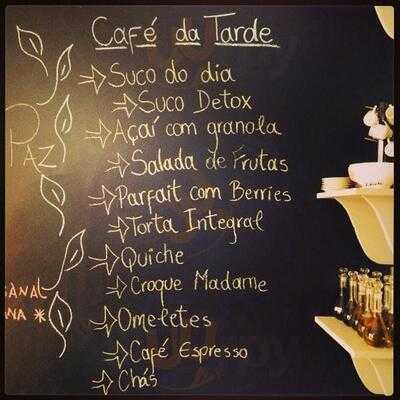 Café da Tarde
Suco do dia
Suco Detox
Açaí com granola
Salada de Frutas
Parfait com Berries
Torta Integral
Quiche
Croque Madame
Omeletes
Café Espresso
Chás
PAZ